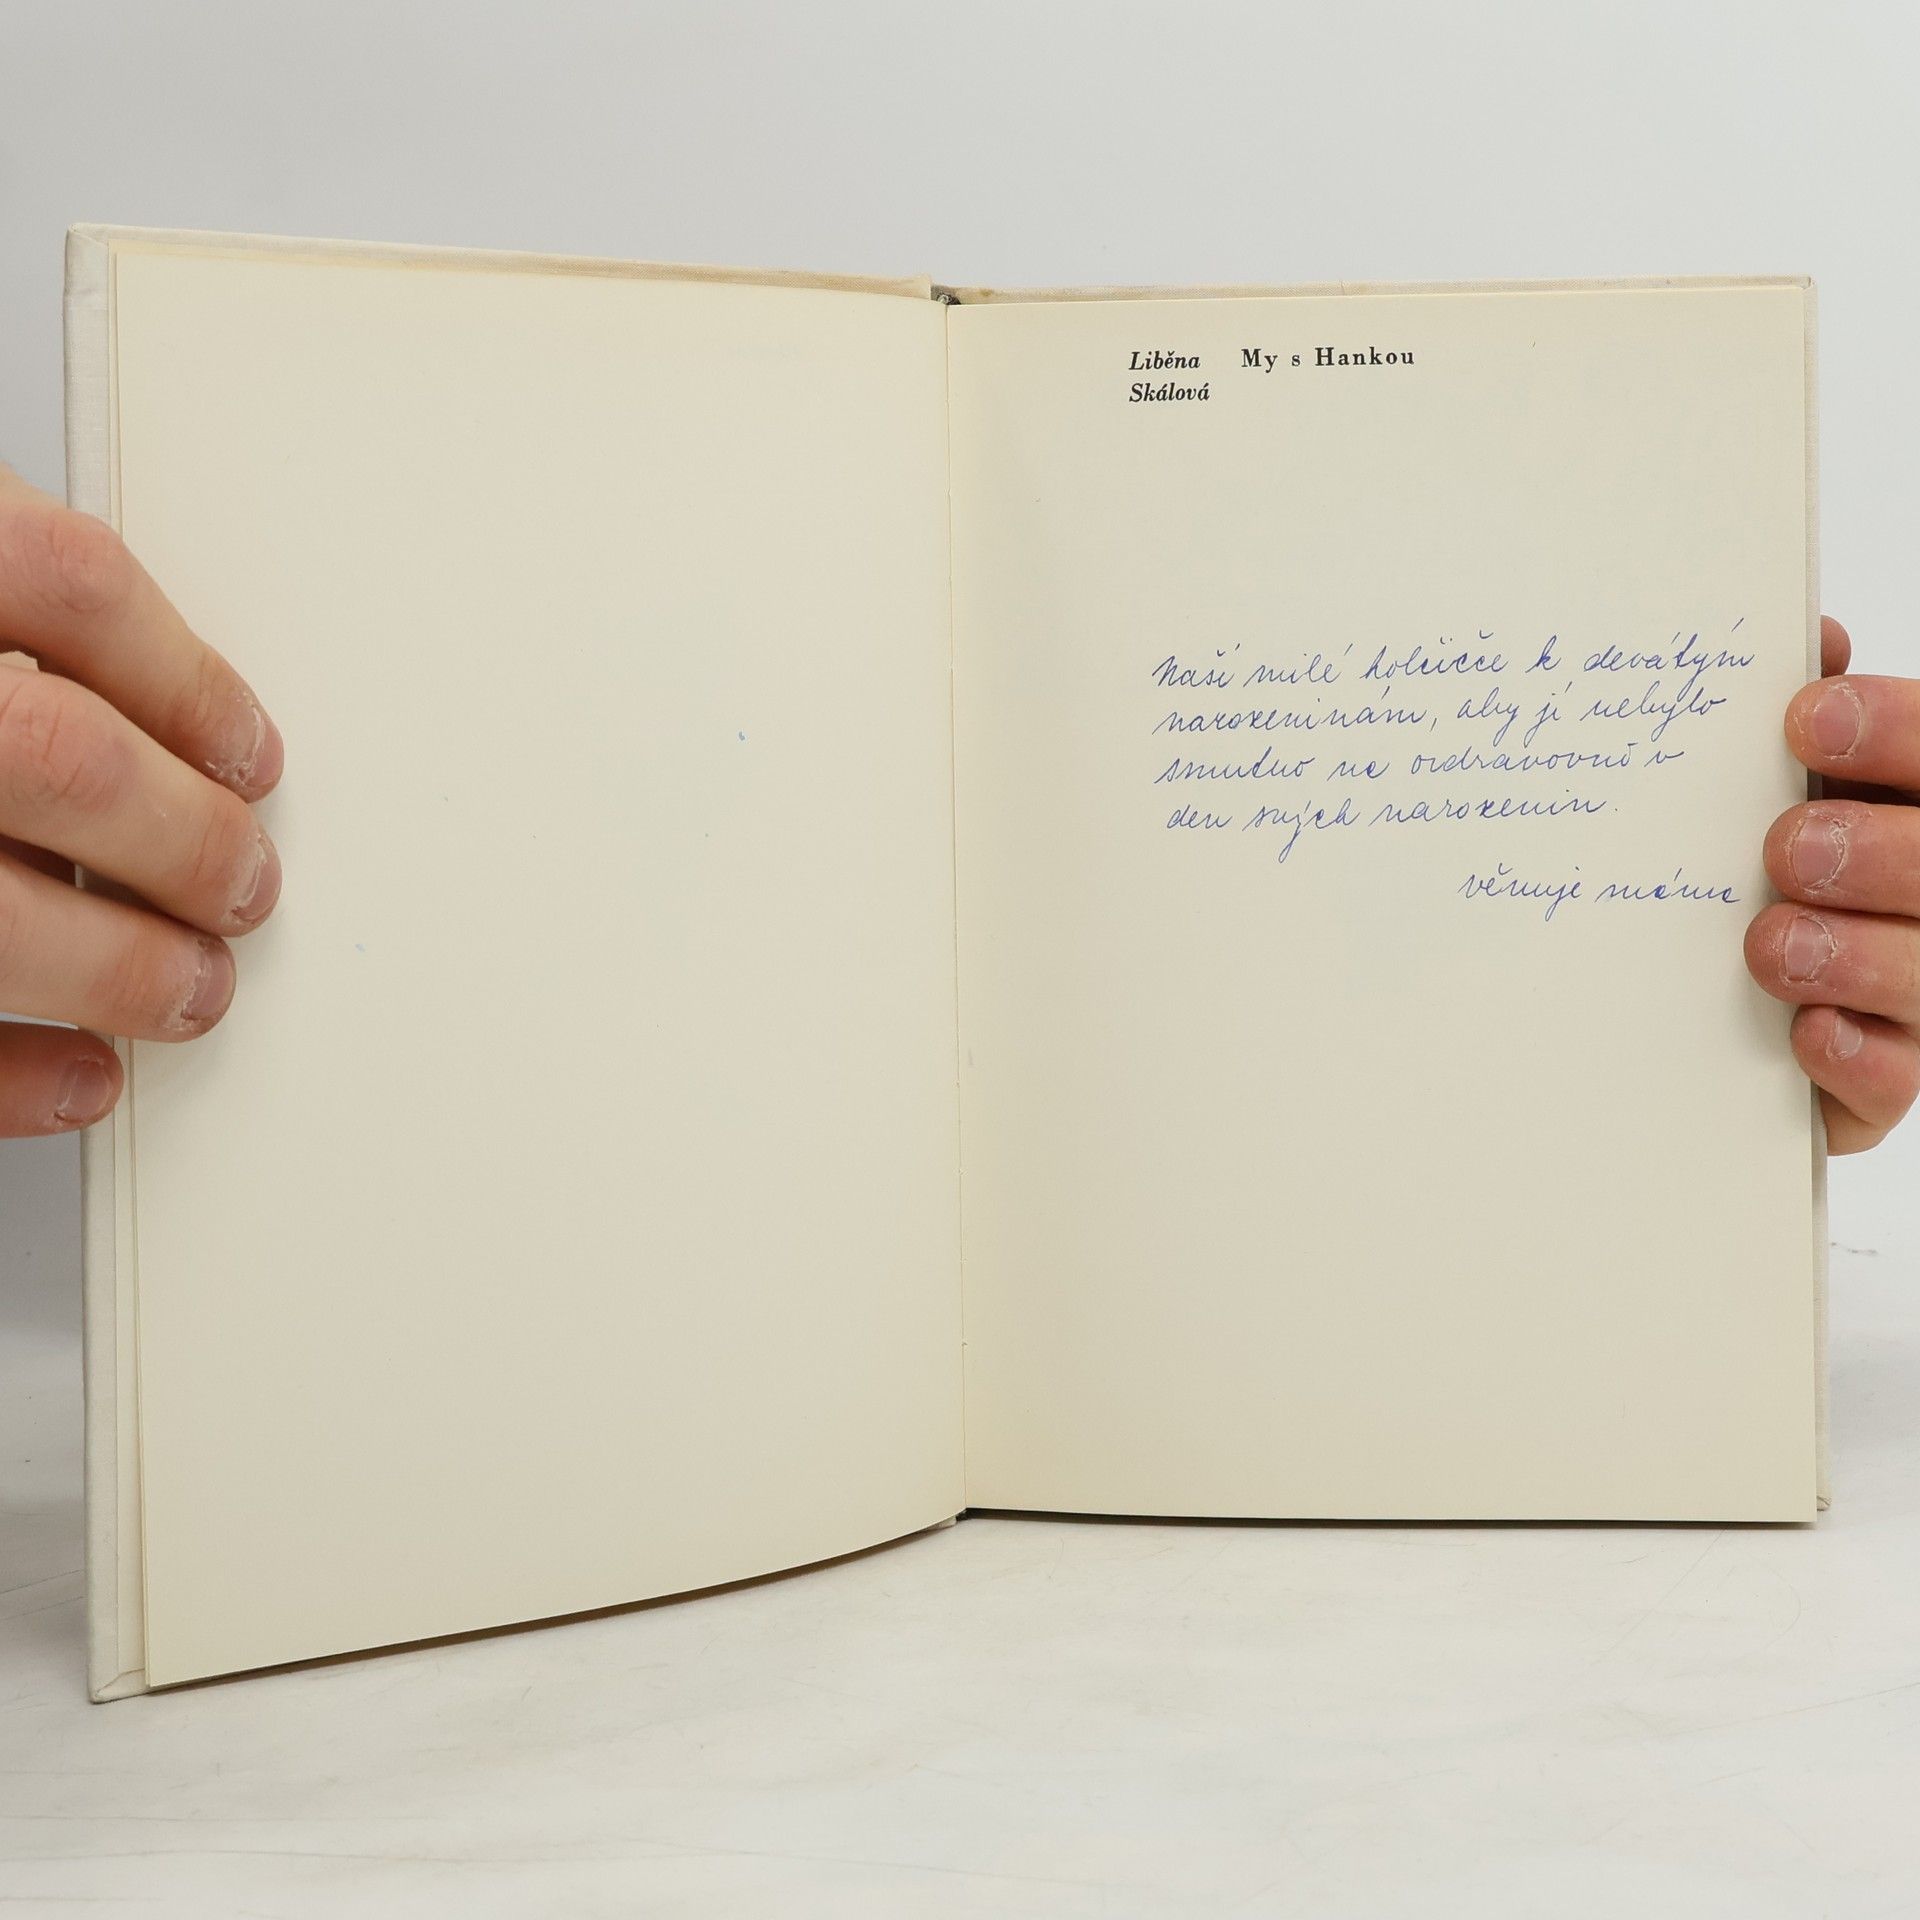 Liběna My s Hankou
Skálová
Naší milé holčičce k devátým
narozeninám, aby jí nebylo
smutno na ozdravovně v
den svých narozenin.
věnuje máma